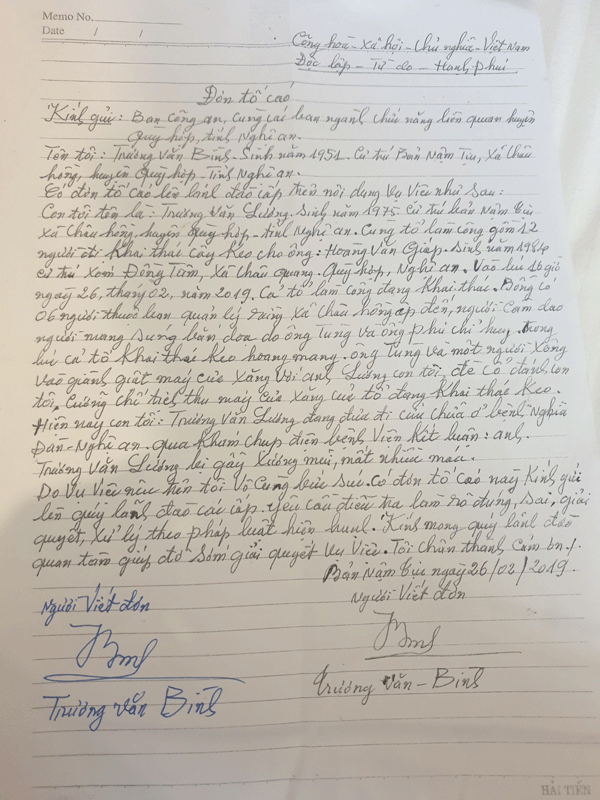 Memo No.
Date / /
Cộng hoà - Xã hội - Chủ nghĩa - Việt Nam
Độc lập - Tự do - Hạnh phúc
Đơn tố cáo
Kính gửi: Ban Công an, cùng các ban ngành chức năng liên quan huyện
Quỳ hợp, tỉnh Nghệ an.
Tên tôi: Trương Văn Bình - Sinh năm 1951. Cư trú Bản Nậm Xã Châu
hồng, huyện Quỳ hợp - Tỉnh Nghệ an.
Có đơn tố cáo lên lãnh đạo cấp trên nội dung Vụ Việc như sau:
Con tôi tên là: Trương Văn Lường. Sinh năm 1975. Cư trú bản Nậm
Xã Châu hồng, huyện Quỳ hợp - tỉnh Nghệ an. Cùng tổ làm công gồm 12
người đi Khai thác Cây Keo cho ông: Hoàng Văn Giáp. Sinh năm 1984
cư trú xóm Đồng Tâm, Xã Châu quang. Quỳ hợp, Nghệ an. Vào lúc 16 giờ
ngày 26, tháng 02, năm 2019. Cả tổ làm công đang Khai thác. Bỗng có
06 người thuộc ban quản lý rừng xã Châu hồng ập đến, người Cầm dao
người mang Súng bắn dọa do ông Tùng và ông Phú chỉ huy. Trong
lúc cả tổ Khai thác Keo hoang mang. Ông Tùng và một người Xông
vào giành giật máy cưa xăng với anh Lường con tôi, đè cổ đánh con
tôi. Cưỡng chế tịch thu máy cưa xăng của tổ đang Khai thác Keo.
Hiện nay con tôi: Trương Văn Lường đang đưa đi cứu chữa ở bệnh Nghĩa
Đàn - Nghệ an. qua Khám chụp điện bệnh Viện Kết luận: anh.
Trương Văn Lường bị gãy Xương mũi, mất nhiều máu.
Do Vụ Việc nêu trên tôi Vô Cùng bức Súc. Có đơn tố cáo này Kính gửi
lên quý lãnh đạo các cấp. Yêu Cầu điều tra làm rõ đúng, Sai, giải
quyết, Xử lý theo pháp luật hiện hành. Kính mong quý lãnh đạo
quan tâm giúp đỡ Sớm giải quyết Vụ Việc. Tôi Chân thành Cám ơn./.
Bản Nậm ngày 26/02/2019.
Người Viết đơn
Người Viết đơn
Trương Văn Bình
Trương Văn - Bình
HẢI TIẾN